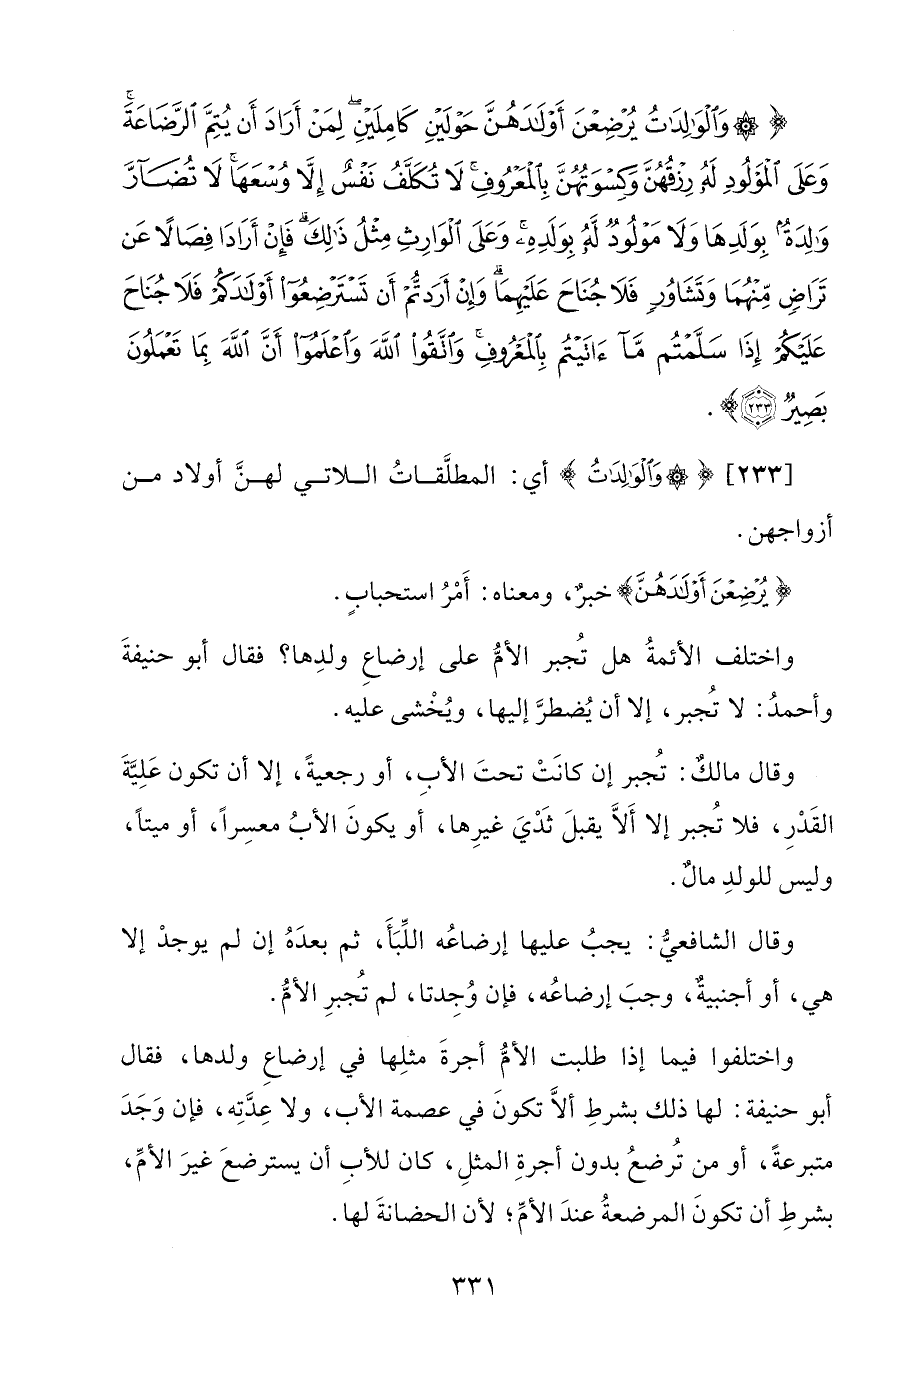 ﴿ ۞ وَٱلْوَٰلِدَٰتُ يُرْضِعْنَ أَوْلَٰدَهُنَّ حَوْلَيْنِ كَامِلَيْنِ ۖ لِمَنْ أَرَادَ أَن يُتِمَّ ٱلرَّضَاعَةَ ۚ
وَعَلَى ٱلْمَوْلُودِ لَهُۥ رِزْقُهُنَّ وَكِسْوَتُهُنَّ بِٱلْمَعْرُوفِ ۚ لَا تُكَلَّفُ نَفْسٌ إِلَّا وُسْعَهَا ۚ لَا تُضَآرَّ
وَٰلِدَةٌۢ بِوَلَدِهَا وَلَا مَوْلُودٌ لَّهُۥ بِوَلَدِهِۦ ۚ وَعَلَى ٱلْوَارِثِ مِثْلُ ذَٰلِكَ ۗ فَإِنْ أَرَادَا فِصَالًا عَن
تَرَاضٍ مِّنْهُمَا وَتَشَاوُرٍ فَلَا جُنَاحَ عَلَيْهِمَا ۗ وَإِنْ أَرَدتُّمْ أَن تَسْتَرْضِعُوٓا۟ أَوْلَٰدَكُمْ فَلَا جُنَاحَ
عَلَيْكُمْ إِذَا سَلَّمْتُم مَّآ ءَاتَيْتُم بِٱلْمَعْرُوفِ ۗ وَٱتَّقُوا۟ ٱللَّهَ وَٱعْلَمُوٓا۟ أَنَّ ٱللَّهَ بِمَا تَعْمَلُونَ
بَصِيرٌ ﴿٢٣٣﴾ ﴾ .
[٢٣٣] ﴿ ۞ وَٱلْوَٰلِدَٰتُ ﴾ أي: المطلَّقاتُ اللاتي لهنَّ أولاد من
أزواجهن.
﴿ يُرْضِعْنَ أَوْلَٰدَهُنَّ ﴾ خبرٌ، ومعناه: أَمْرُ استحبابٍ.
واختلف الأئمةُ هل تُجبر الأمُّ على إرضاعِ ولدِها؟ فقال أبو حنيفةَ
وأحمدُ: لا تُجبر، إلا أن يُضطرَّ إليها، ويُخْشى عليه.
وقال مالكٌ: تُجبر إن كانَتْ تحتَ الأبِ، أو رجعيةً، إلا أن تكون عَلِيَّةَ
القَدْرِ، فلا تُجبر إلا أَلاَّ يقبلَ ثَدْيَ غيرِها، أو يكونَ الأبُ معسِراً، أو ميتاً،
وليس للولدِ مالٌ.
وقال الشافعيُّ: يجبُ عليها إرضاعُه اللِّبَأَ، ثم بعدَهُ إن لم يوجدْ إلا
هي، أو أجنبيةٌ، وجبَ إرضاعُه، فإن وُجِدتا، لم تُجبرِ الأمُّ.
واختلفوا فيما إذا طلبت الأمُّ أجرةَ مثلِها في إرضاعِ ولدها، فقال
أبو حنيفة: لها ذلك بشرطِ ألاَّ تكونَ في عصمة الأب، ولا عِدَّتِه، فإن وَجَدَ
متبرعةً، أو من تُرضعُ بدون أجرةِ المثلِ، كان للأبِ أن يسترضعَ غيرَ الأمِّ،
بشرطِ أن تكونَ المرضعةُ عندَ الأمِّ؛ لأن الحضانةَ لها.
٣٣١